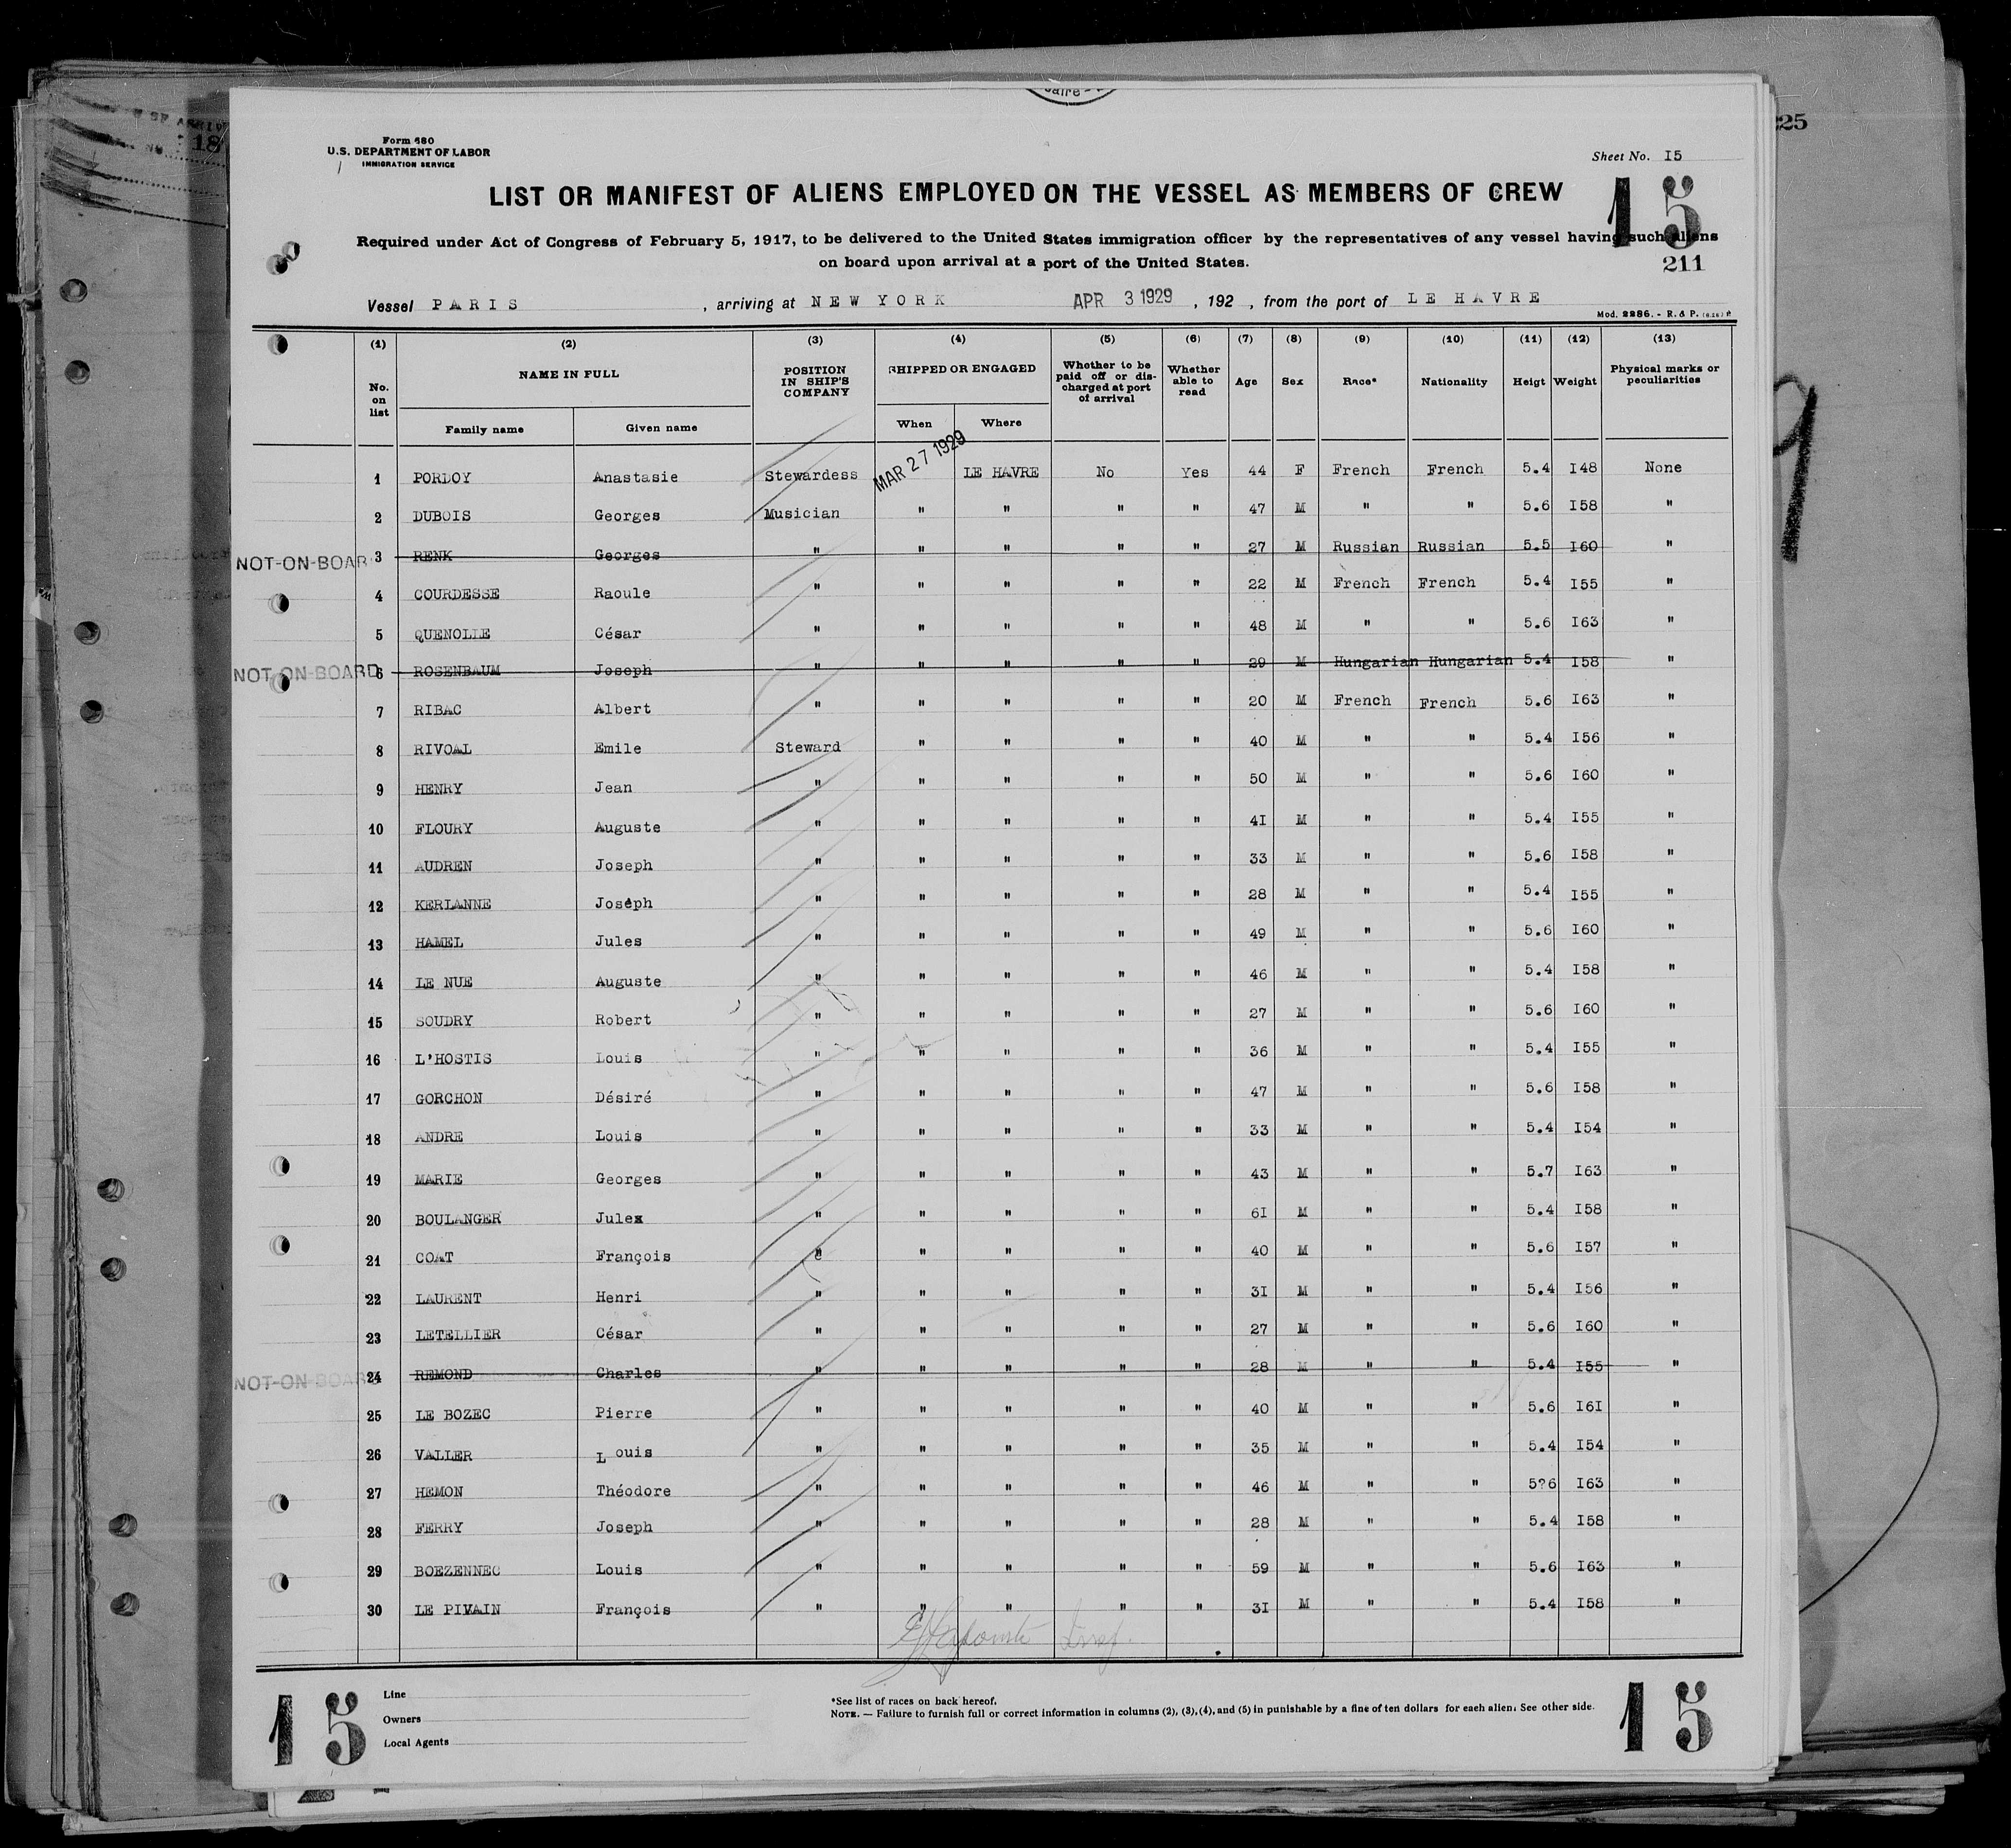 aire
Form 680
U.S. DEPARTMENT OF LABOR
IMMIGRATION SERVICE
Sheet No. I5
LIST OR MANIFEST OF ALIENS EMPLOYED ON THE VESSEL AS MEMBERS OF CREW
15
Required under Act of Congress of February 5, 1917, to be delivered to the United States immigration officer by the representatives of any vessel having such aliens
on board upon arrival at a port of the United States.
211
Vessel PARIS , arriving at NEW YORK APR 3 1929 , 192 , from the port of LE HAVRE
Mod. 2286. - R. & P.
(1) (2) (3) (4) (5) (6) (7) (8) (9) (10) (11) (12) (13)
No. on list NAME IN FULL POSITION IN SHIP'S COMPANY SHIPPED OR ENGAGED Whether to be paid off or discharged at port of arrival Whether able to read Age Sex Race* Nationality Heigt Weight Physical marks or peculiarities
Family name Given name When Where
1 PORDOY Anastasie Stewardess MAR 27 1929 LE HAVRE No Yes 44 F French French 5.4 I48 None
2 DUBOIS Georges Musician " " " " 47 M " " 5.6 I58 "
NOT-ON-BOAR 3 RENK Georges " " " " " 27 M Russian Russian 5.5 I60 "
4 COURDESSE Raoule " " " " " 22 M French French 5.4 I55 "
5 QUENOLLE César " " " " " 48 M " " 5.6 I63 "
NOT-ON-BOARD 6 ROSENBAUM Joseph " " " " " 29 M Hungarian Hungarian 5.4 I58 "
7 RIBAC Albert " " " " " 20 M French French 5.6 I63 "
8 RIVOAL Emile Steward " " " " 40 M " " 5.4 I56 "
9 HENRY Jean " " " " " 50 M " " 5.6 I60 "
10 FLOURY Auguste " " " " " 4I M " " 5.4 I55 "
11 AUDREN Joseph " " " " " 33 M " " 5.6 I58 "
12 KERLANNE Joseph " " " " " 28 M " " 5.4 I55 "
13 HAMEL Jules " " " " " 49 M " " 5.6 I60 "
14 LE NUE Auguste " " " " " 46 M " " 5.4 I58 "
15 SOUDRY Robert " " " " " 27 M " " 5.6 I60 "
16 L'HOSTIS Louis " " " " " 36 M " " 5.4 I55 "
17 GORCHON Désiré " " " " " 47 M " " 5.6 I58 "
18 ANDRE Louis " " " " " 33 M " " 5.4 I54 "
19 MARIE Georges " " " " " 43 M " " 5.7 I63 "
20 BOULANGER Jules " " " " " 6I M " " 5.4 I58 "
21 COAT François " " " " " 40 M " " 5.6 I57 "
22 LAURENT Henri " " " " " 3I M " " 5.4 I56 "
23 LETELLIER César " " " " " 27 M " " 5.6 I60 "
NOT-ON-BOAR 24 REMOND Charles " " " " " 28 M " " 5.4 I55 "
25 LE BOZEC Pierre " " " " " 40 M " " 5.6 I6I "
26 VALLER Louis " " " " " 35 M " " 5.4 I54 "
27 HEMON Théodore " " " " " 46 M " " 5?6 I63 "
28 FERRY Joseph " " " " " 28 M " " 5.4 I58 "
29 BOEZENNEC Louis " " " " " 59 M " " 5.6 I63 "
30 LE PIVAIN François " " " " " 3I M " " 5.4 I58 "
Line
Owners
Local Agents
*See list of races on back hereof.
NOTE. — Failure to furnish full or correct information in columns (2), (3), (4), and (5) in punishable by a fine of ten dollars for each alien. See other side.
15
15